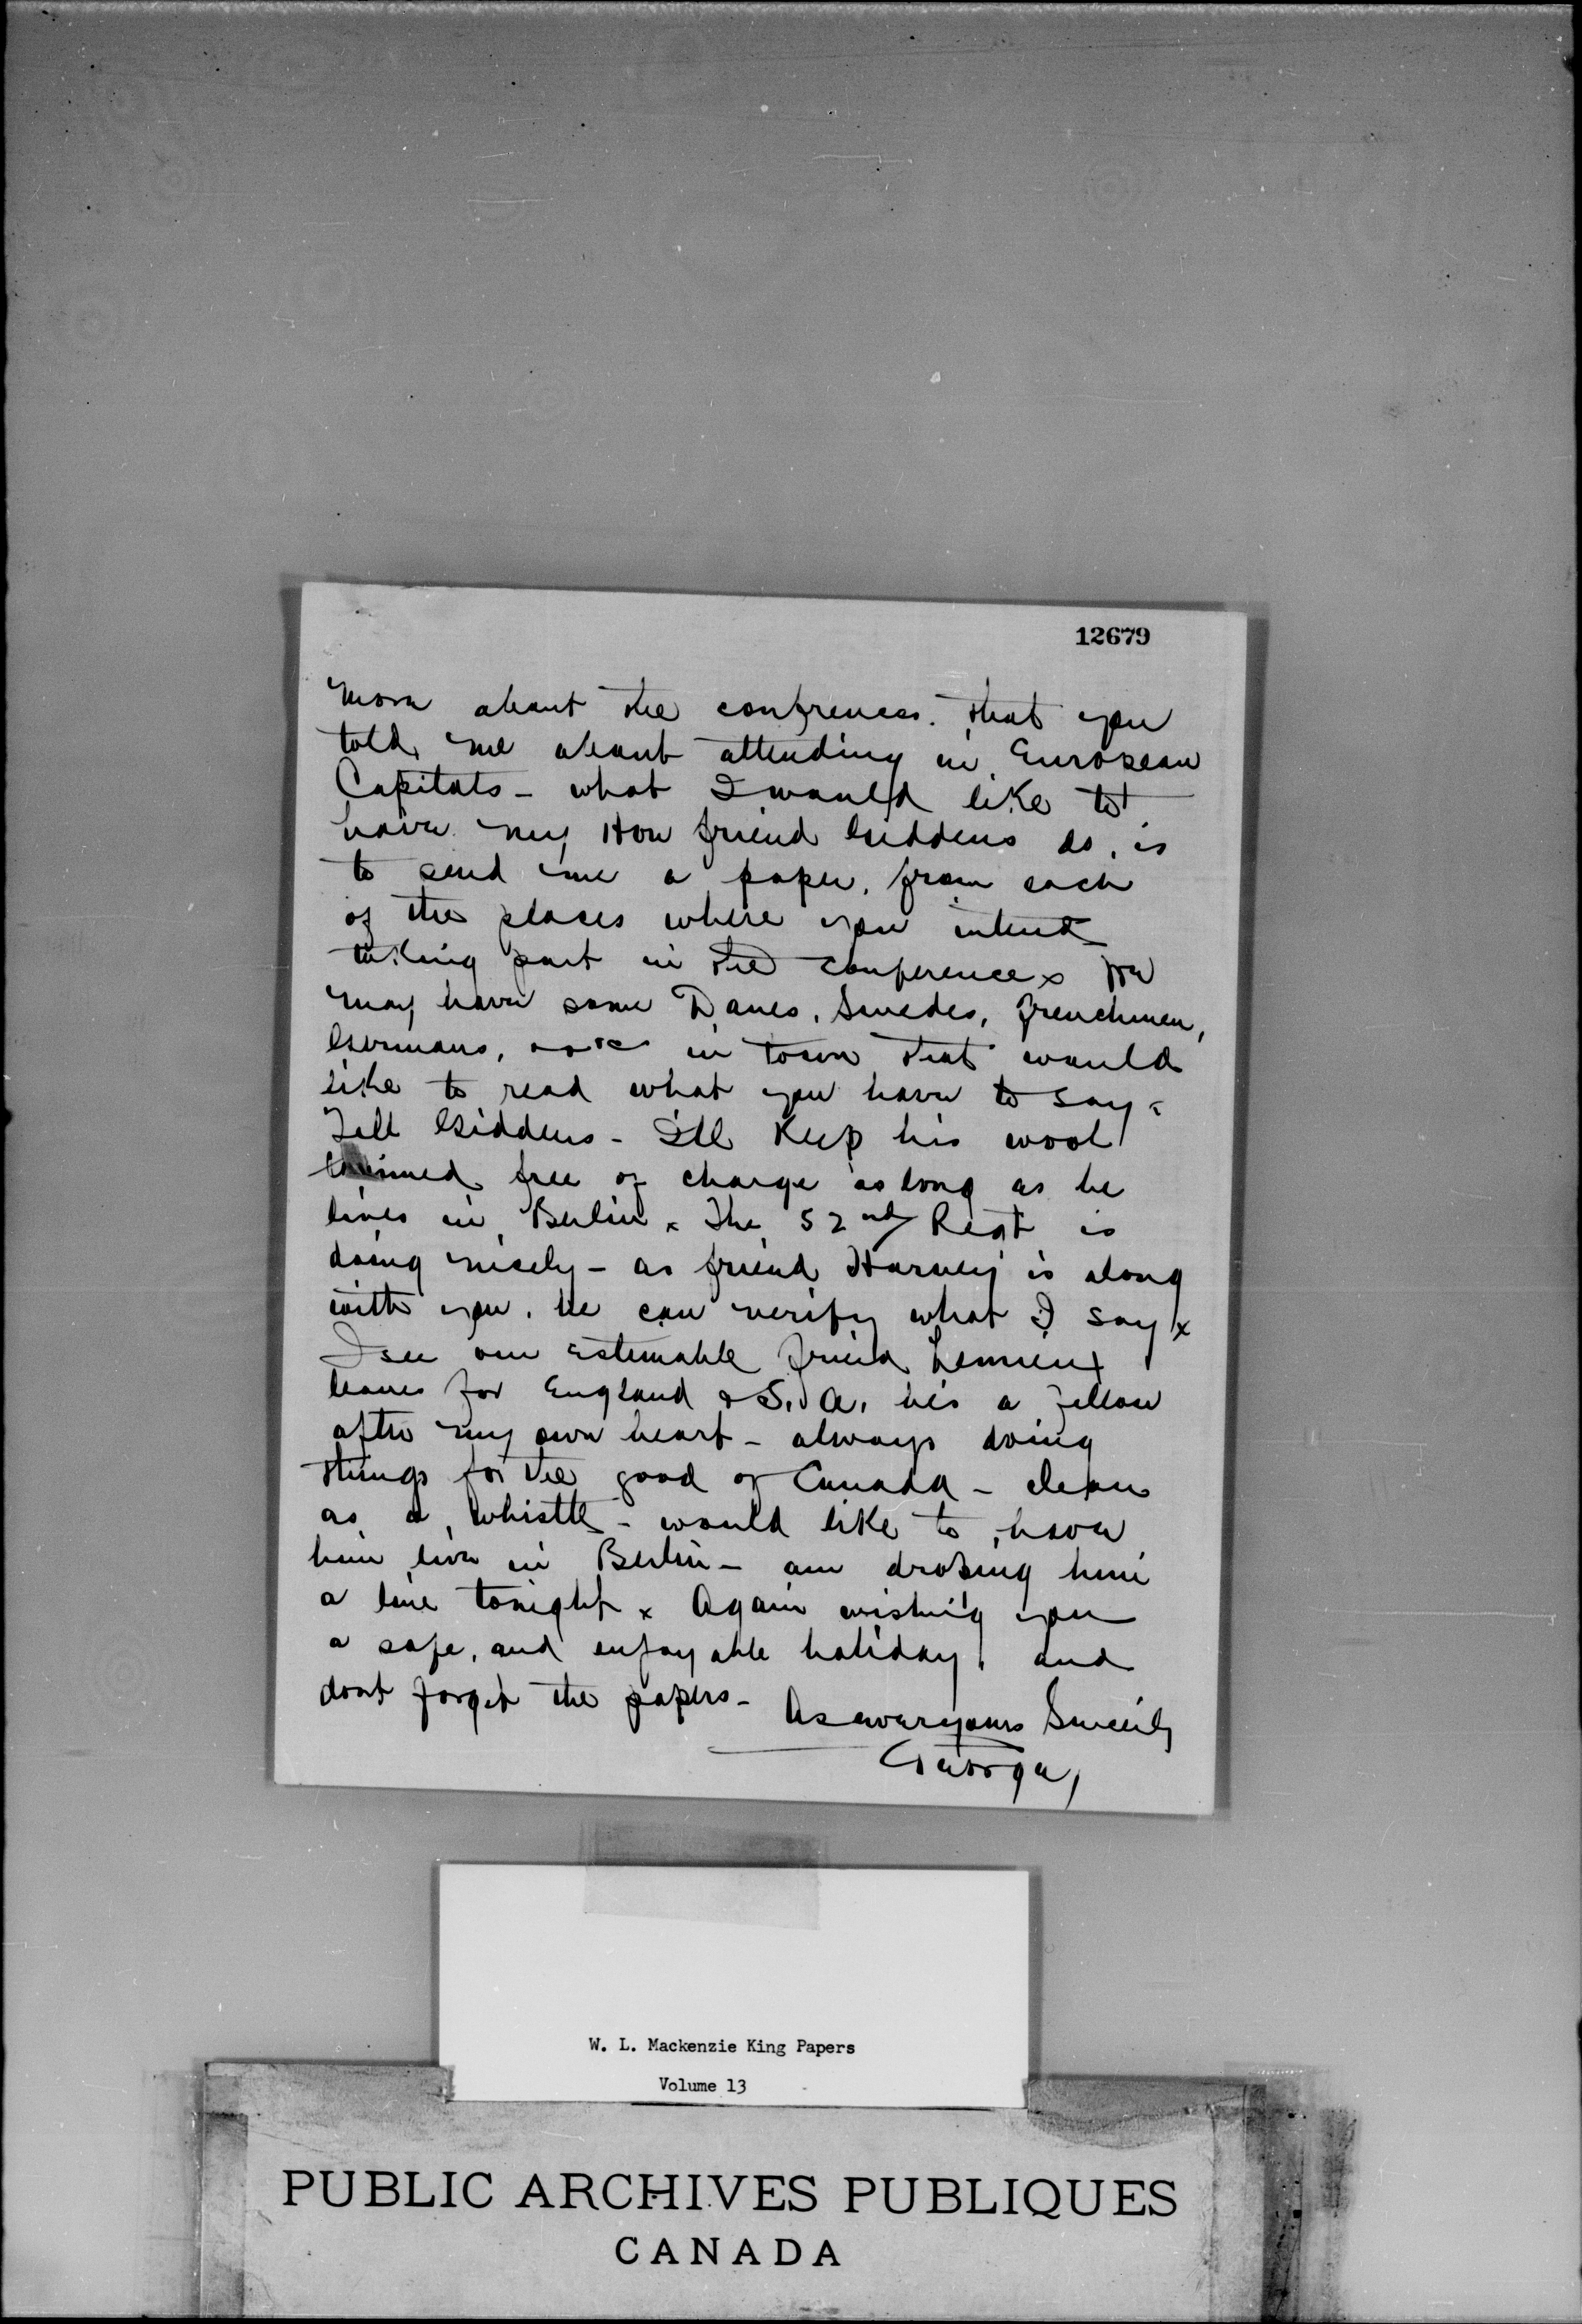 12679
more about the confrences. that you
told me about attending in European
Capitals - what I would like to
have my Hon friend Giddens do, is
to send me a paper, from each
of the places where you intend
taking part in the conference x We
may have some Danes, Swedes, Frenchmen,
Germans, in town that would
like to read what you have to say x
Tell Giddens - I'll Keep his wool
trimed free of charge as long as he
lives in Berlin x The 52nd Regt is
doing nicely - as friend Harvey is along
with you, he can verify what I say x
I see our Estemable friend Lemieux
leaves for England & S. A. he's a fellow
after my own heart - always doing
things for the good of Canada - clean
as a whistle - would like to have
him live in Berlin - am droping him
a line tonight x Again wishing you
a safe, and enjoyable holiday, and
dont forget the papers -
As ever yours Sincerly
George,
W. L. Mackenzie King Papers
Volume 13
PUBLIC ARCHIVES PUBLIQUES
CANADA